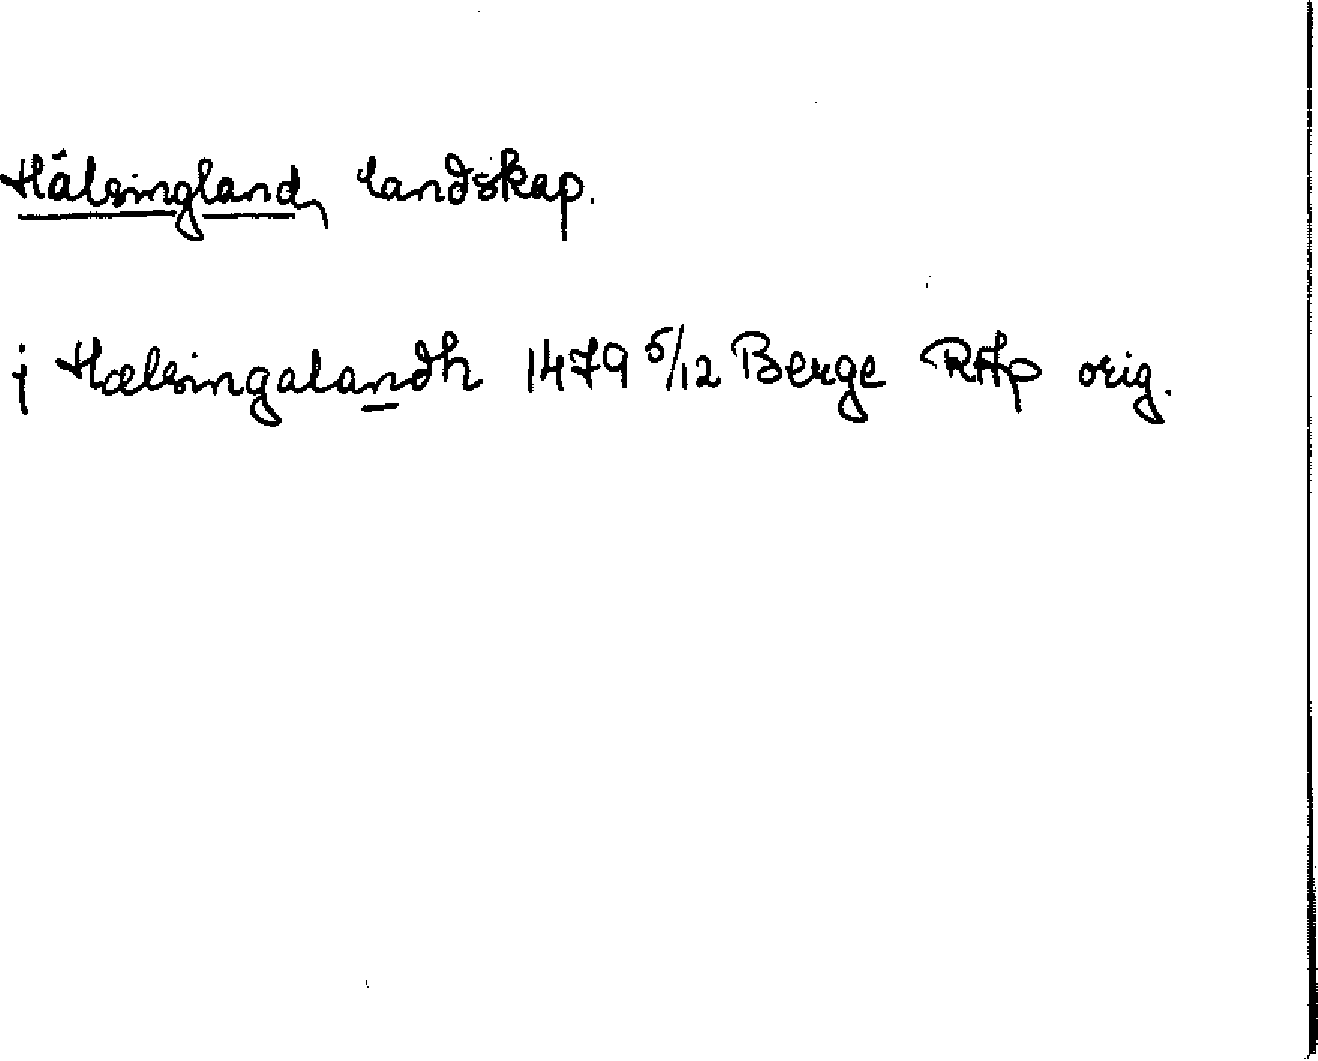 Hälsingland, landskap.
j Hælsingalandh 1479 5/12 Berge RAp orig.